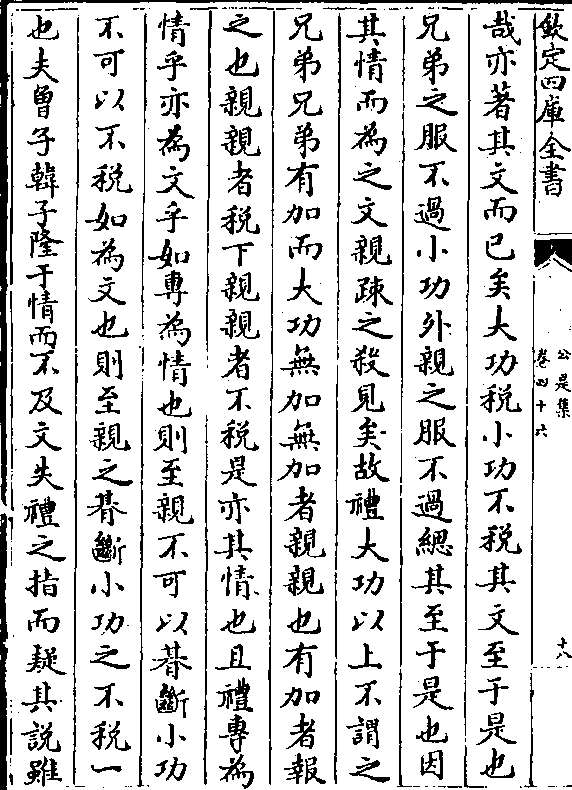 欽定四庫全書
公是集
卷四十六
十八
哉亦著其文而已矣大功税小功不税其文至于是也
兄弟之服不過小功外親之服不過緦其至于是也因
其情而為之文親疎之殺見矣故禮大功以上不謂之
兄弟兄弟有加而大功無加無加者親親也有加者報
之也親親者税下親親者不税是亦其情也且禮專為
情乎亦為文乎如專為情也則至親不可以朞斷小功
不可以不税如為文也則至親之朞斷小功之不税一
也夫曾子韓子隆于情而不及文失禮之指而疑其説雖